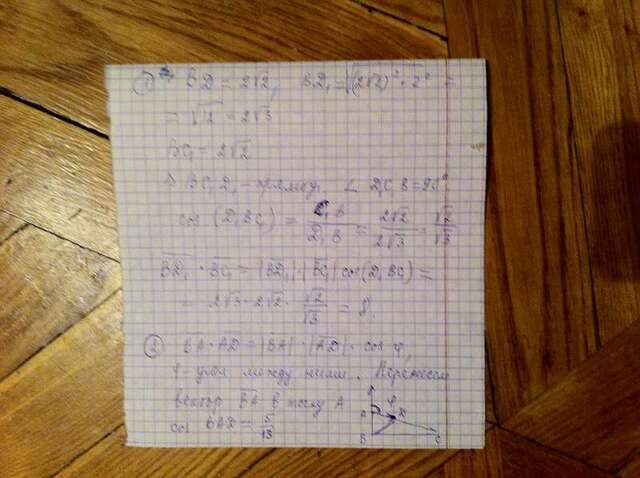 1) BD = 2√2, BD₁ = √(2√2)² + 2² =
= √12 = 2√3
BC₁ = 2√2
Δ BC₁D₁ – прямоуг. ∠ D₁C₁B = 90°
cos (D₁BC₁) = C₁B / D₁B = 2√2 / 2√3 = √2 / √3
BD₁ · BC₁ = |BD₁| · |BC₁| cos(D₁BC₁) =
= 2√3 · 2√2 · √2 / √3 = 8.
2) BA · AD = |BA| · |AD| · cos φ,
φ – угол между ними. Перенесем
вектор BA в точку A
cos BAD = 5 / 13
A
φ
K
B
C